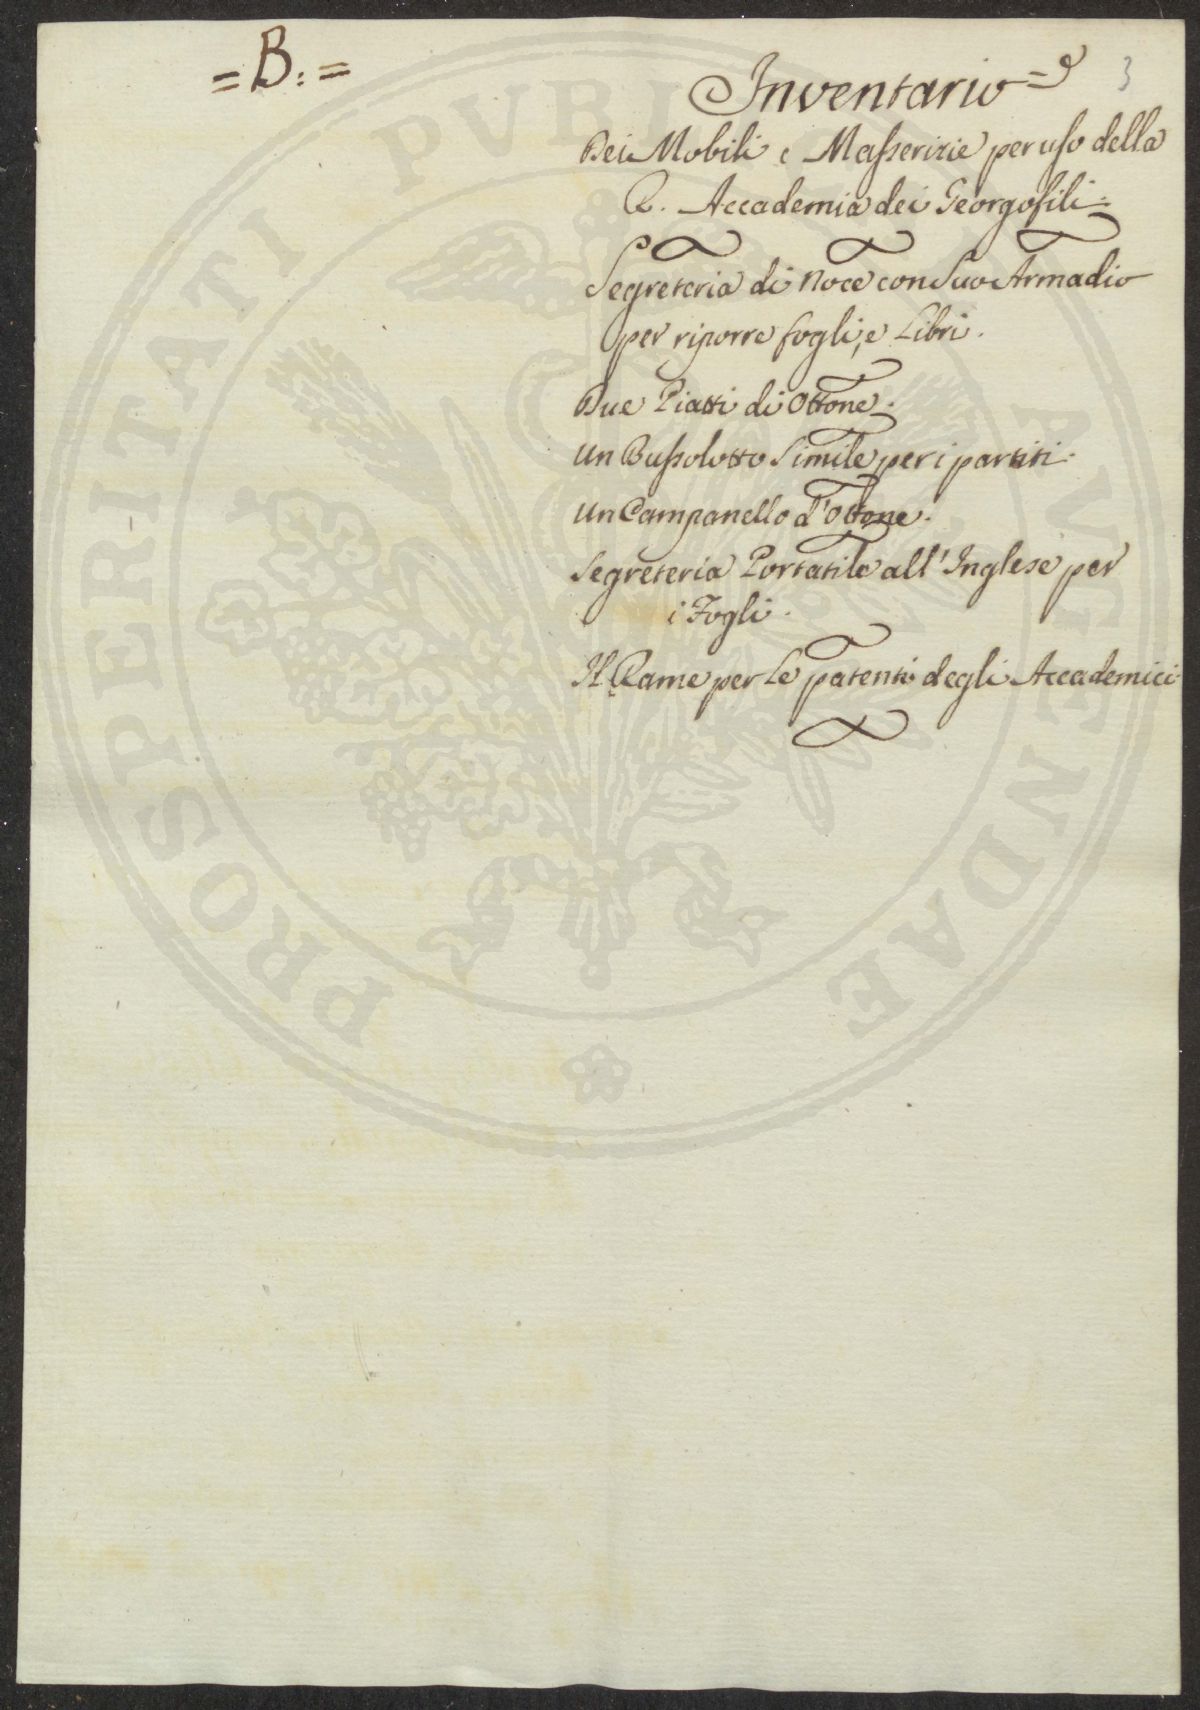 =B:=
3
Inventario=
Dei Mobili e Masserizie per uso della
R. Accademia dei Georgofili=
Segreteria di Noce con suo Armadio
per riporre fogli, e Libri.
Due Piatti di Ottone.
Un Bussolotto Simile per i partiti.
Un Campanello d'Ottone.
Segreteria Portatile all'Inglese per
i Fogli.
Il Rame per Le patenti degli Accademici
PROSPERITATI PVBLICAE AVGENDAE